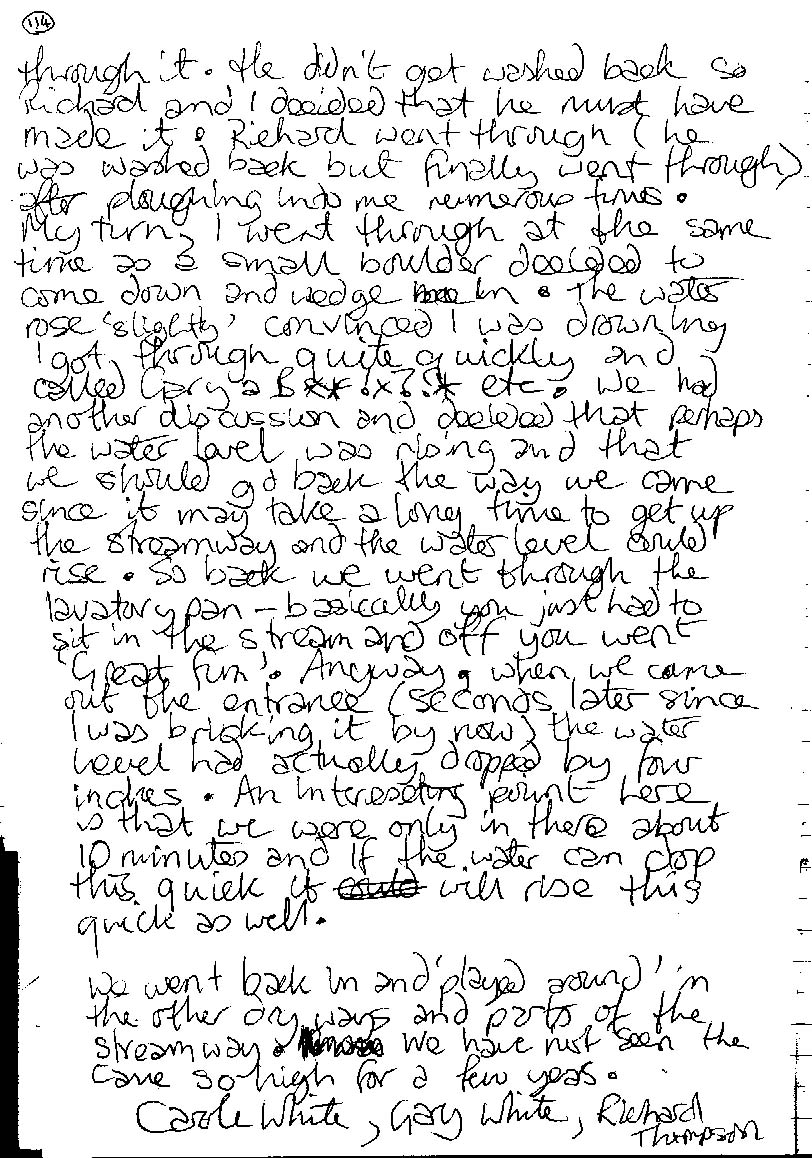 114
through it. He didn't get washed back so
Richard and I decided that he must have
made it. Richard went through (he
was washed back but finally went through)
after ploughing into me numerous times.
My turn, I went through at the same
time as a small boulder decided to
come down and wedge in. The water
rose 'slightly' convinced I was drowning
I got through quite quickly and
called Gary a B**!x?!* etc. We had
another discussion and decided that perhaps
the water level was rising and that
we should go back the way we came
since it may take a long time to get up
the streamway and the water level could
rise. So back we went through the
lavatory pan - basically you just had to
sit in the stream and off you went
'Great fun'. Anyway, when we came
out the entrance (seconds later since
I was bricking it by now) the water
level had actually dropped by four
inches. An interesting point here
is that we were only in there about
10 minutes and if the water can drop
this quick it will rise this
quick as well.
We went back in and 'played around' in
the other dry ways and parts of the
streamway. We have not seen the
cave so high for a few years.
Carole White, Gary White, Richard
Thompson